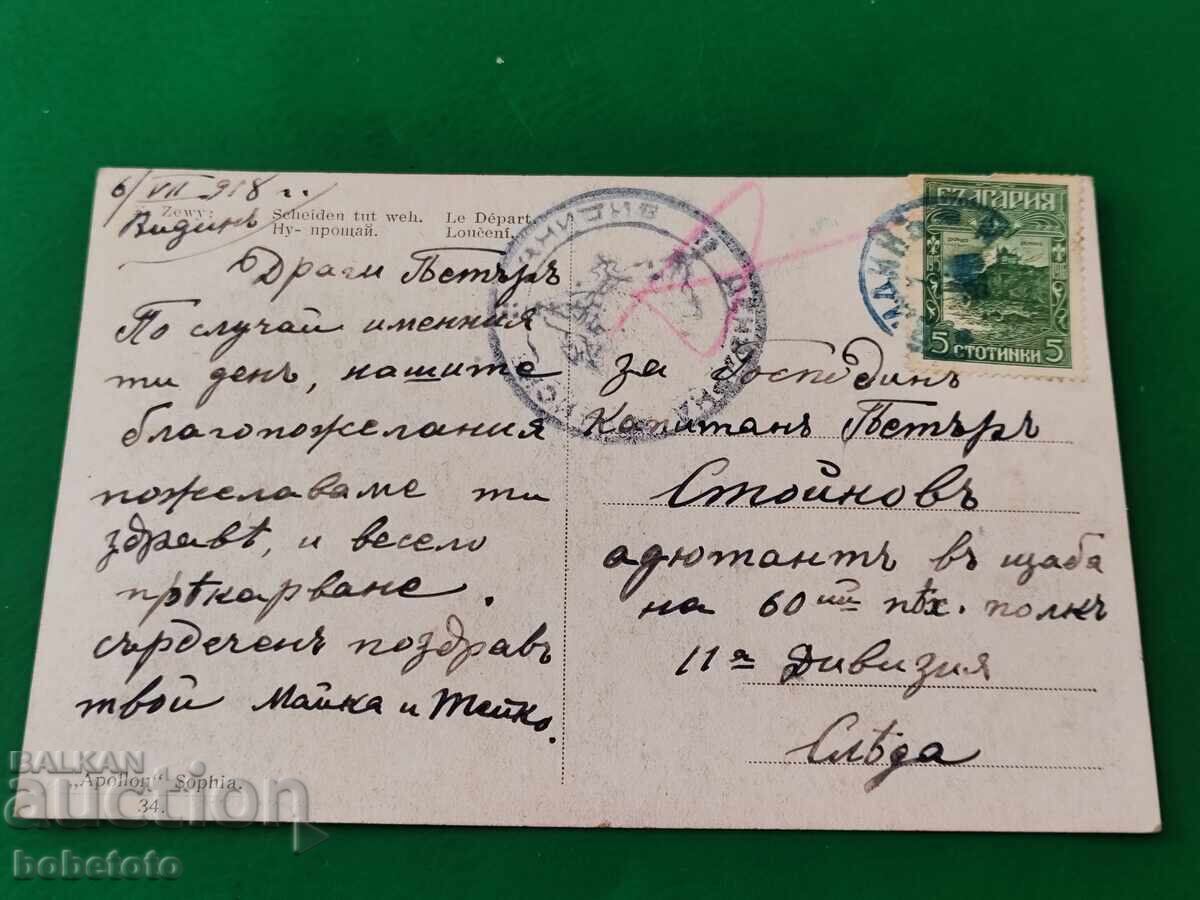 6/VII 918 г.
Видинъ
Zewy:
Scheiden tut weh. Le Départ.
Ну- прощай. Loučení.
Драги Петъръ
По случай именния
ти денъ, нашите
благопожелания
пожелаваме ти
здравѣ, и весело
прѣкарване.
сърдеченъ поздравъ
твой Майка и Тейко.
"Apollon" Sophia.
34.
БЪЛГАРИЯ
5 СТОТИНКИ 5
за Господинъ
Капитанъ Петъръ
Стойновъ
адютантъ въ щаба
на 60ий пѣх. полкъ
11я Дивизия
Слѣда
BALKAN
auction
bobetoto